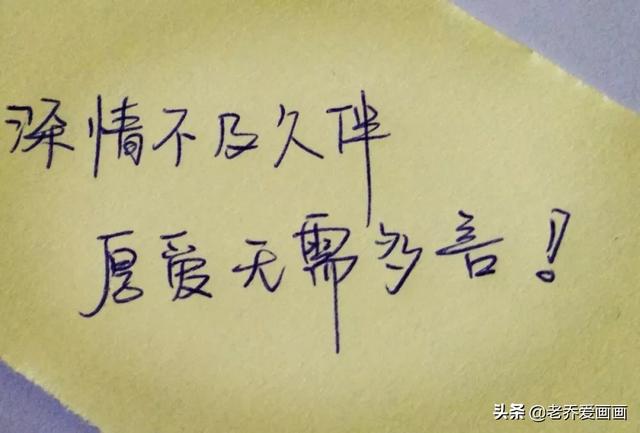 深情不及久伴
厚爱无需多言!
头条 @老乔爱画画